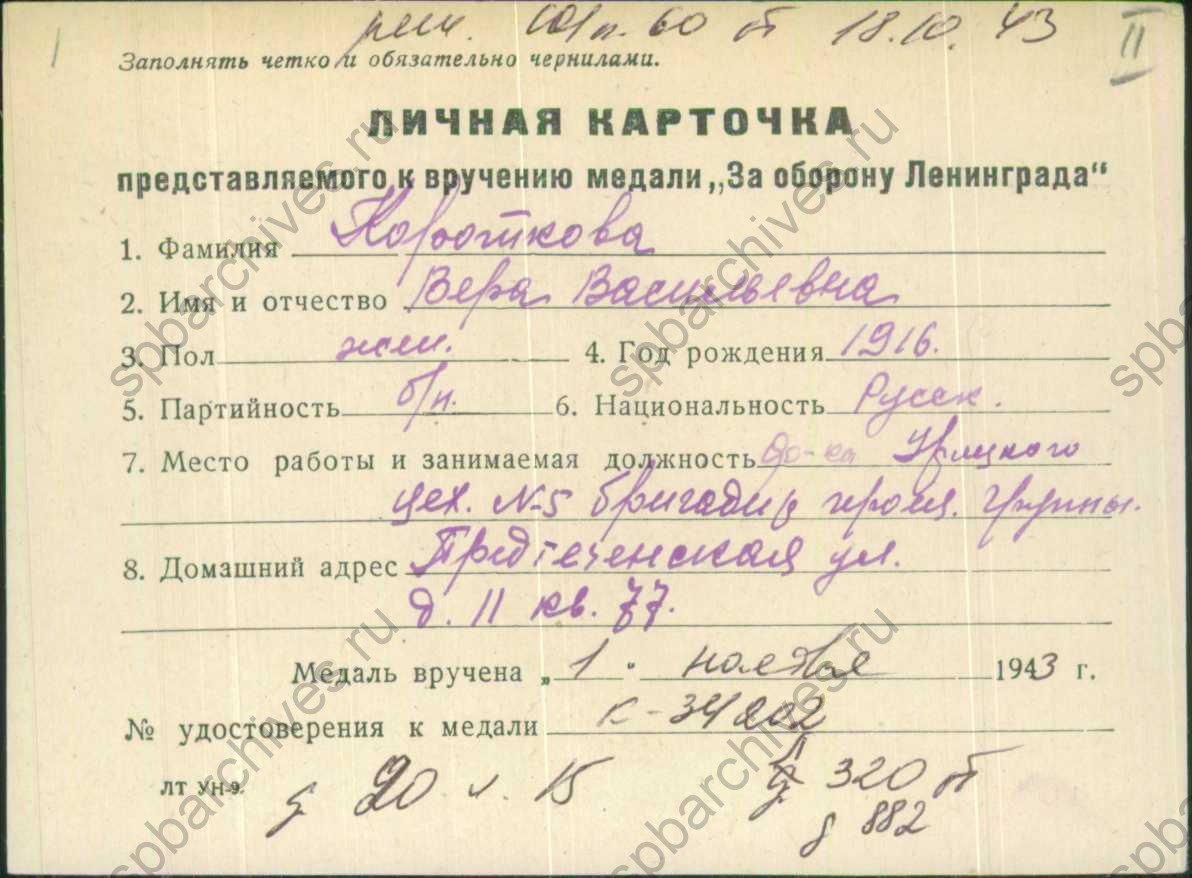 реш. 101 п. 60 от 18.10.43
II
Заполнять четко и обязательно чернилами.
ЛИЧНАЯ КАРТОЧКА
представляемого к вручению медали „За оборону Ленинграда“
1. Фамилия Короткова
2. Имя и отчество Вера Васильевна
3. Пол жен. 4. Год рождения 1916.
5. Партийность б/п. 6. Национальность Русск.
7. Место работы и занимаемая должность Урицкого
цех. №5 бригадир группы.
8. Домашний адрес Предтеченская ул.
д. 11 кв. 77.
Медаль вручена „1“ ноября 1943 г.
№ удостоверения к медали К-34202
ЛТ УН-9.
д 20 л. 15 д 320 от
д 882
spbarchives.ru